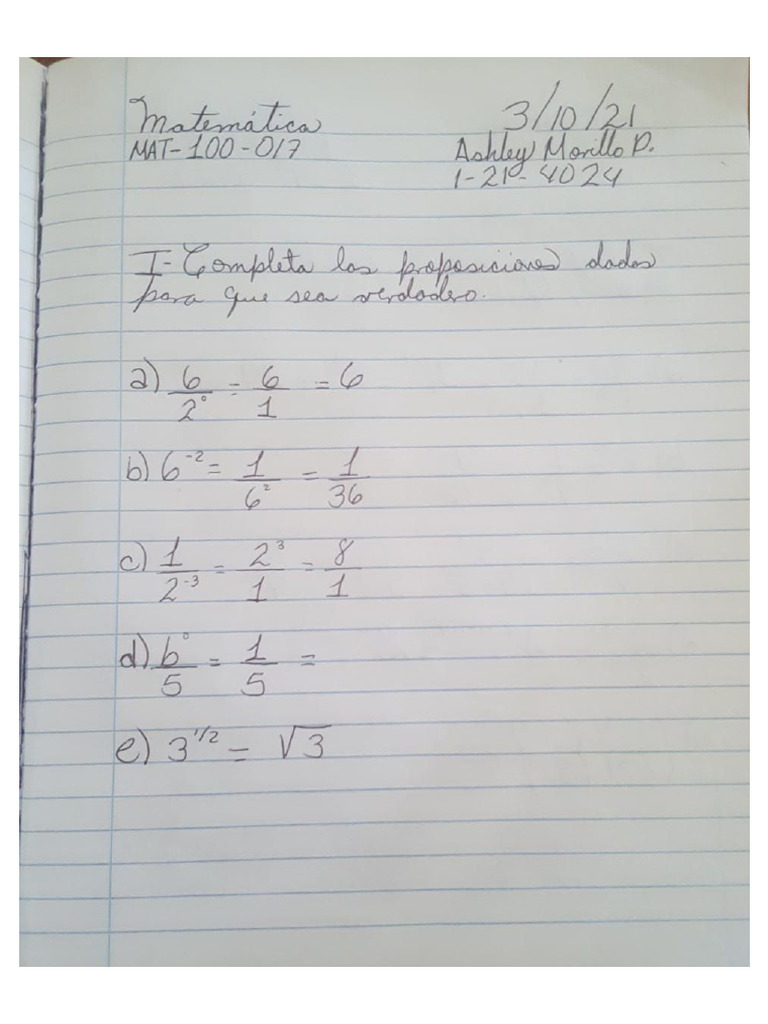 Matemática
3/10/21
MAT-100-017
Ashley Morillo P.
1-21-4024
I- Completa las proposiciones dadas
para que sea verdadero.
a) 6/2° = 6/1 = 6
b) 6⁻² = 1/6² = 1/36
c) 1/2⁻³ = 2³/1 = 8/1
d) b°/5 = 1/5 =
e) 3^1/2 = √3